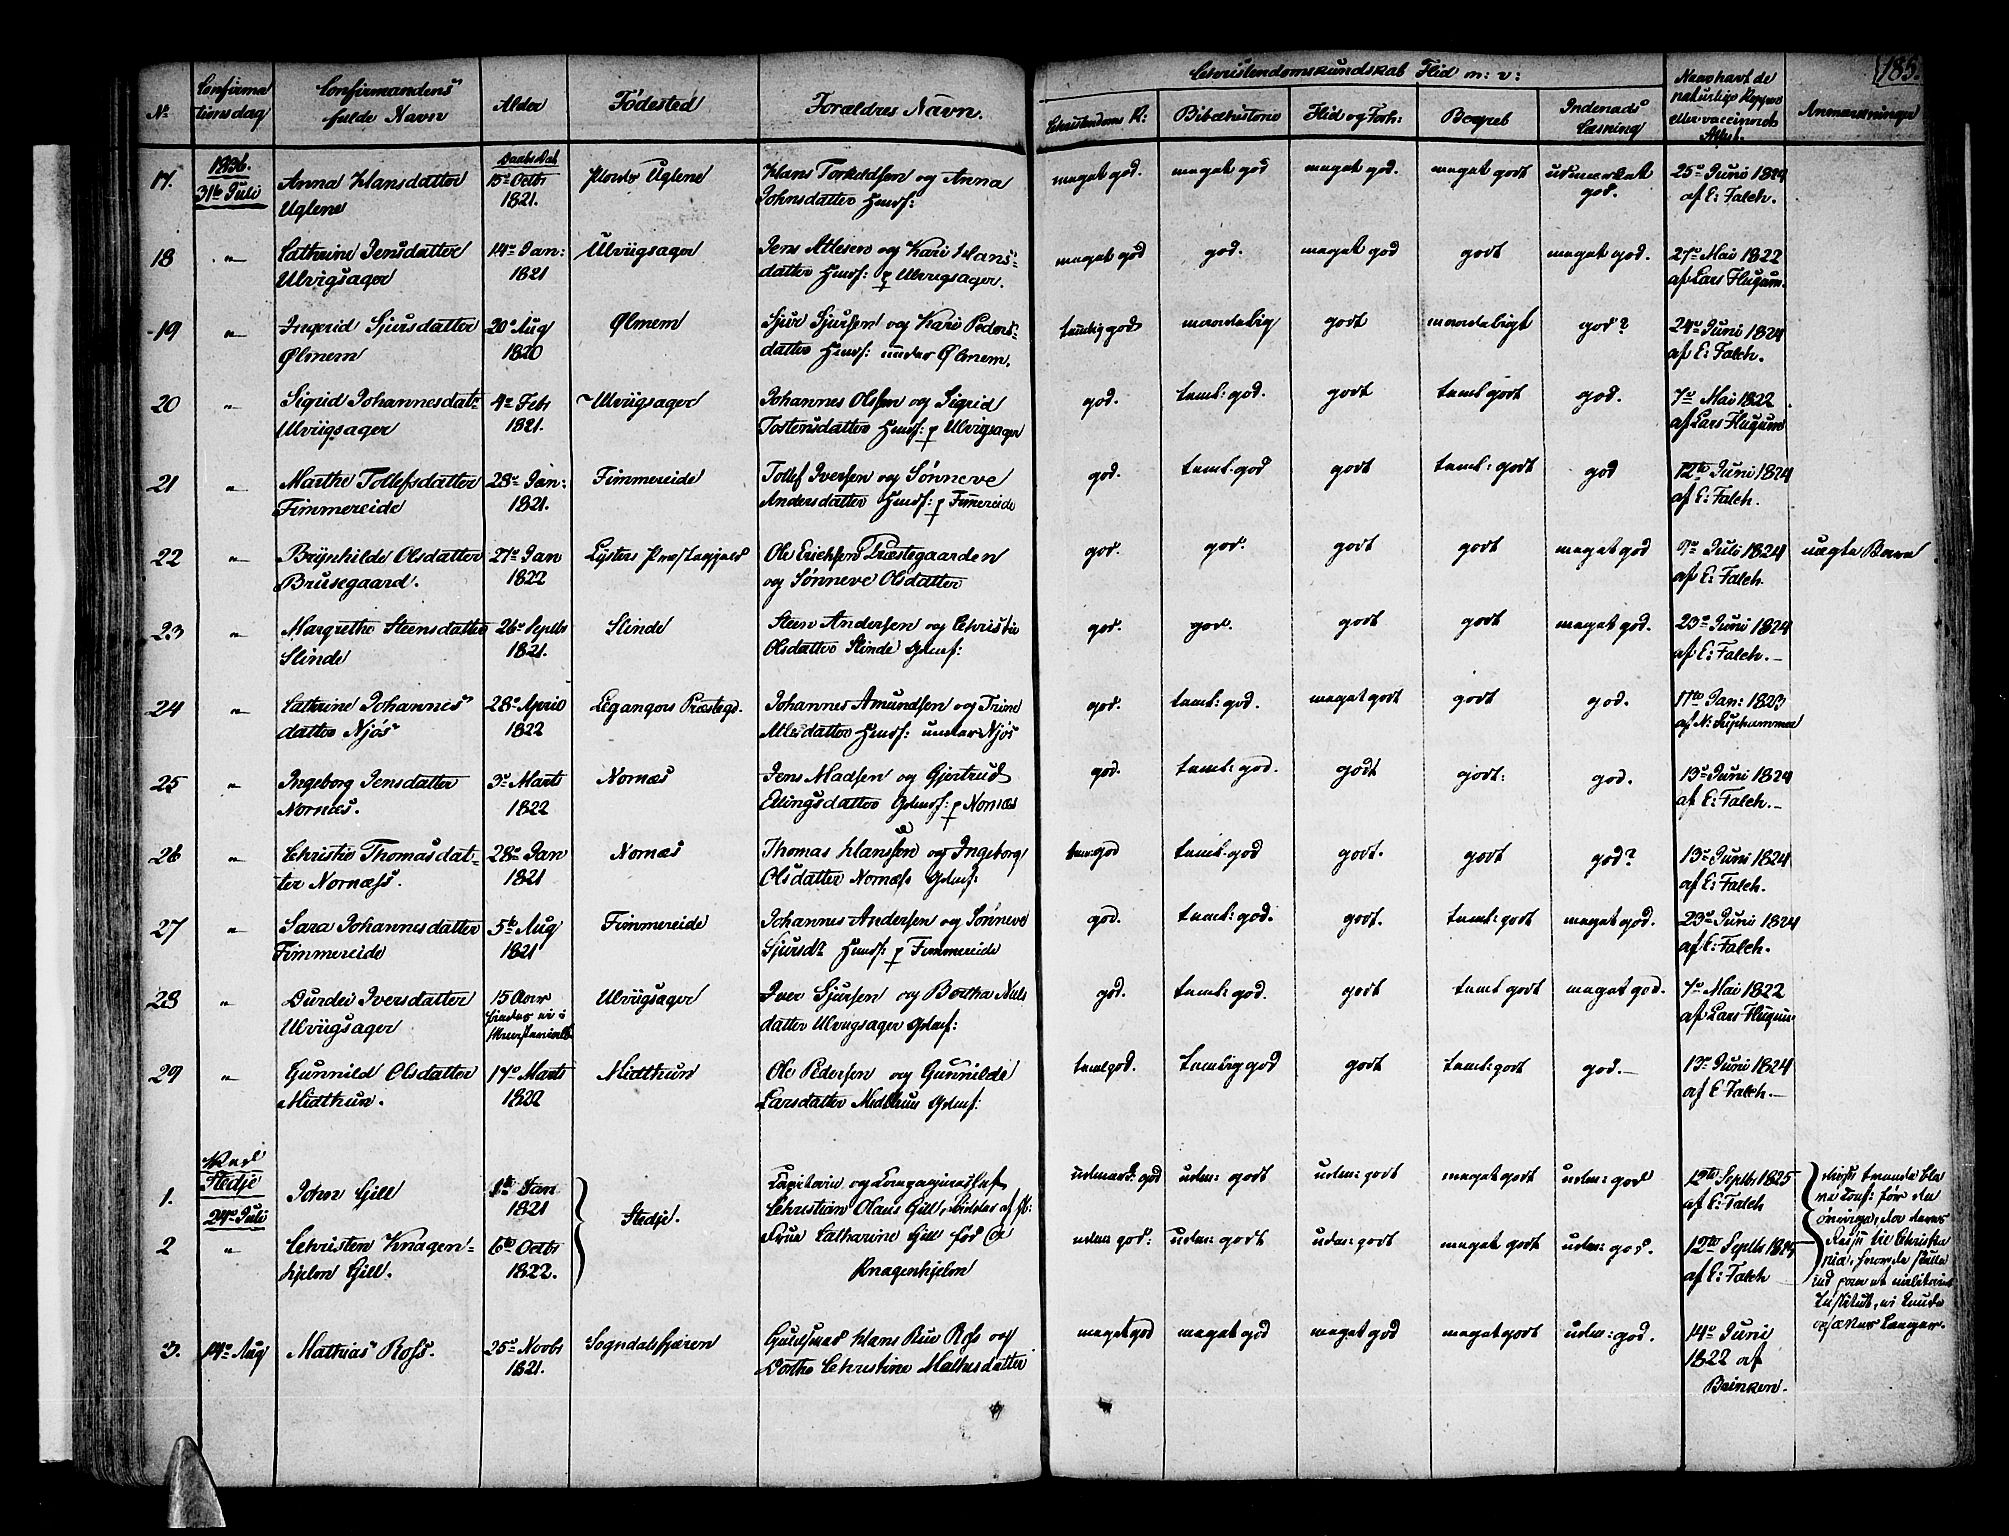 185.
No
Confirma
tionsdag
Confirmandens
fulde Navn
Alder
Fødested
Forældres Navn.
Christendomskundskab Flid m: v:
Christendoms K:
Bibelhistorie
Flid og Forh:
Begreb
Indenads
Læsning
Naar havt de
naturlige Kopper
eller vaccineret
Attest.
Anmærkninger
17.
1836.
31te Juli
Anna Hansdatter
Uglene
Daabsdat
15de Octbr
1821.
Uglene
Hans Torkildsen og Anna
Johnsdatter Husf:
meget god.
meget god
meget god.
meget godt
udmærket
god.
25de Juni 1824
af E: Falch.
18
"
Cathrine Jensdatter
Ulvigsager
14de Jan:
1821
Ulviigsager
Jens Atlesen og Kari Hans-
datter Husf: p Ulvigsager.
meget god
god.
meget god
godt
meget god.
27de Mai 1822
af Lars Flugum.
19
"
Ingerid Sjursdatter
Ølmem
20de Aug
1820
Ølmem
Sjur Sjursen og Kari Peders-
datter Husf: under Ølmem.
temlig god
maadelig
godt
maadeligt
god?
24de Juni 1824
af E: Falch.
20
"
Sigrid Johannesdat-
Ulviigsager
4de Febr
1821.
Ulviigsager
Johannes Olsen og Sigrid
Tostensdatter Husf: p Ulvigsager
god.
teml: god.
godt
teml godt
god.
7de Mai 1822
af Lars Flugum
21
"
Marthe Tollefsdatter
Fimmereide
28de Jan:
1821.
Fimmereide
Tollef Iversen og Sønneve
Andersdatter Husf: p Fimereide
god.
teml. god
godt
teml: godt
god
12te Juni 1824
af E: Falch.
22
"
Brynhilde Olsdatter
Brusegaard.
27de Jan
1822
Lysters Præstegjeld
Ole Erichsen Præstegaarden
og Sønneve Olsdatter
god.
god.
godt
godt
meget god
9de Juli 1824
af E: Falch.
uægte Barn
23
"
Margrethe Steensdatter
Slinde
26de Septbr
1821.
Slinde
Steen Andersen og Christie
Olsdatter Slinde Gdmf:
god.
god.
godt
godt
meget god.
23de Juni 1824
af E: Falch.
24
"
Cathrine Johannes
datter Njøs
28de April
1822
Leganger Præstegd.
Johannes Amundsen og Trine
Atlesdatter Husf: under Njøs
god.
teml: god.
meget godt
godt
god.
17te Jan: 1823
af N:
25
"
Ingeborg Jensdatter
Nornæs.
3de Marts
1822
Nornæs
Jens Madsen og Gjertrud
Elingsdatter Gdmf: p Nornæs
god.
teml: god.
godt
godt:
god.
13de Juni 1824
af E: Falch.
26
"
Christie Thomasdat-
ter Nornæss.
28de Jan
1821
Nornæs
Thomas Hanssen og Ingeborg
Olsdatter Nornæss Gdmf:
teml god
teml. god
godt.
godt
god?
13de Juni 1824
af E: Falch.
27
"
Sara Johannesdatter
Fimmereide
5te Aug
1821
Fimmereide
Johannes Andersen og Sønneve
Sjursdt Husf: p Fimmereide
god.
teml: god.
godt.
teml: godt
meget god.
23de Juni 1824
af E: Falch.
28
"
Durdei Iversdatter
Ulviigsager
15 Aar
findes ei i
Ministerialb
Ulviigsager
Iver Sjursen og Bertha Niels
datter Ulvigsager Gdmf:
god.
teml: god.
godt
teml godt
meget god.
7de Mai 1822
af Lars Flugum
29
"
Gunnild Olsdatter
Midthun.
17de Marts
1822
Midthun
Ole Pedersen og Gunnilde
Larsdatter Midthun Gdmf:
teml god.
temlig god
godt
teml: godt
god.
13de Juni 1824
af E Falch.
Ved
Stedje
24de Juli
1.
John Gill
1te Jan
1821
Stedje.
Capitain og Compagniechef
Christian Olaus Gill, Ridder af
Frue Catharine Gill fød
Knagenhjelm
udmærk: god
udm: godt
udm: godt
meget godt
udm: god
12te Septbr 1825
af E: Falch
disse tvende ble
ve Conf: før de
øvrige, da deres
Reise til Christia
nia, hvor de skulle
ind paa et militairt
Institut, ei kunde
opsættes længer.
2
"
Christen Knagen-
hjelm Gill.
6te Octbr
1822.
udm: god:
udm: godt
udm: godt
meget godt
udm: god.
12te Septbr
af E: Falch
3.
14de Aug
Mathias Ross.
25de Novbr
1821.
Sogndalsfjæren
Hans Ross og
Dorthe Christine Mathisdatter
meget god
meget god
meget god
meget godt
udm: god.
14de Juni
1822 af
Brinken.